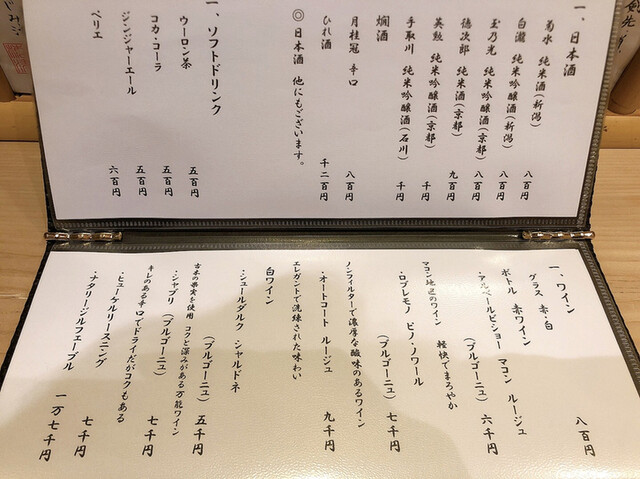 一、日本酒
菊水 純米酒(新潟) 八百円
白瀧 純米吟醸酒(新潟) 八百円
玉乃光 純米吟醸酒(京都) 八百円
徳次郎 純米酒(京都) 九百円
英勲 純米吟醸酒(京都) 千円
手取川 純米吟醸酒(石川) 千円
燗酒
月桂冠 辛口 八百円
ひれ酒 千二百円
◎日本酒 他にもございます。
一、ソフトドリンク
ウーロン茶 五百円
コカ・コーラ 五百円
ジンジャーエール 五百円
ペリエ 六百円
一、ワイン
グラス 赤・白 八百円
ボトル 赤ワイン
・アルベールビショー マコン ルージュ
(ブルゴーニュ) 六千円
マコン地区のワイン 軽快でまろやか
・ロブレモノ ピノ・ノワール
(ブルゴーニュ) 七千円
ノンフィルターで濃厚な酸味のあるワイン
・オートコート ルージュ 九千円
エレガントで洗練された味わい
白ワイン
・シュールダルク シャルドネ
(ブルゴーニュ) 五千円
古木の果実を使用 コクと深みがある万能ワイン
・シャブリ (ブルゴーニュ) 七千円
キレのある辛口でドライだがコクもある
・ヒューゲルリースニング 七千円
・ナタリージルフェーブル 一万七千円